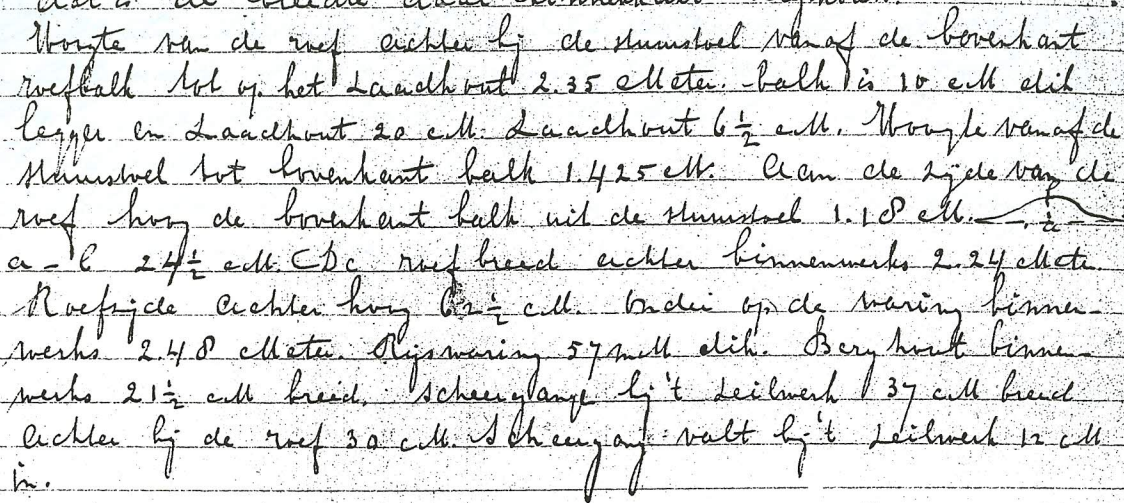 Hoogte van de roef achter bij de stuurstoel vanaf de bovenkant
roefbalk tot op het Laadhout 2.35 Meter. balk is 10 cM dik
legger en Laadhout 20 cM. Laadhout 6½ cM. Hoogte vanaf de
stuurstoel tot bovenkant balk 1.425 M. Aan de zijde van de
roef hoog de bovenkant balk uit de stuurstoel 1.18 M. b a
a - b 24½ cM. De roef breed achter binnenwerks 2.24 Meter.
Roefzijde achter hoog 62½ cM. Onder op de waring binnen-
werks 2.48 Meter. Rijswaring 57 mM dik. Berghout binnen-
werks 21½ cM breed. Scheergang bij 't Zeilwerk 37 cM breed
Achter bij de roef 30 cM. Scheergang valt bij 't Zeilwerk 12 cM
in.